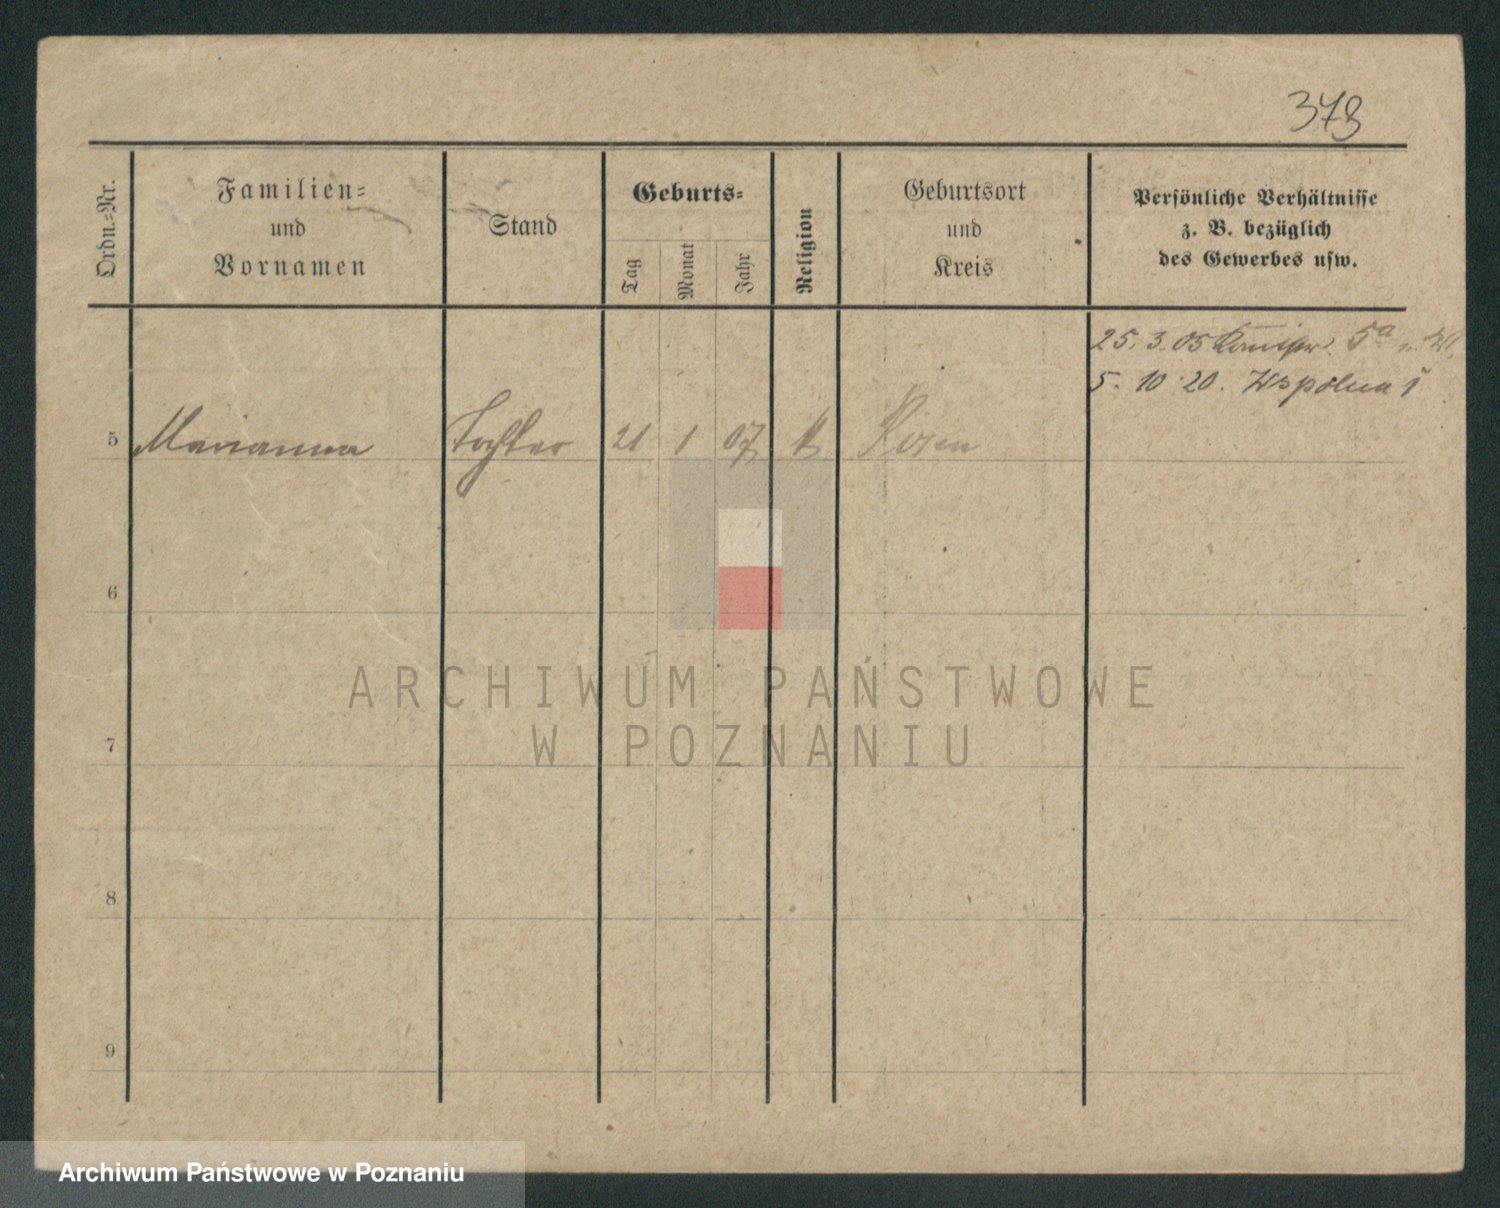 378
Ordn.-Nr.
Familien-
und
Vornamen
Stand
Geburts-
Tag
Monat
Jahr
Religion
Geburtsort
und
Kreis
Persönliche Verhältnisse
z. B. bezüglich
des Gewerbes usw.
25. 3. 05 5a
5. 10. 20. Wspólna 7
5 Marianna Tochter 21 1 07 k Posen
6
7
8
9
ARCHIWUM PAŃSTWOWE
W POZNANIU
Archiwum Państwowe w Poznaniu